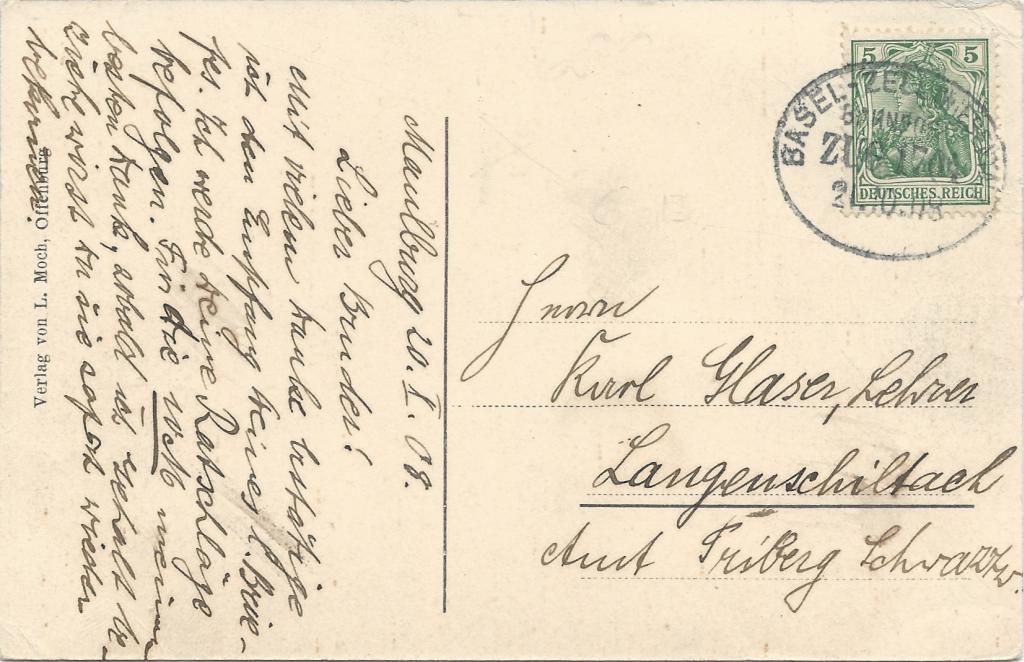 Maulburg 20. I. 08.
Lieber Bruder!
Mit vielem Danke bestätige
ich den Empfang Deines l. Brie-
fes. Ich werde Deine Ratschläge
befolgen. Für die
besten Dank, sobald ich Gehalt be-
ziehe wirst Du sie sofort wieder
bekommen.
Verlag von L. Moch, Offenburg
5 5
DEUTSCHES REICH
BASEL-ZELL
BAHNPOST
ZUG
Herrn
Karl Glaser, Lehrer
Langenschiltach
Amt Triberg Schwarzw.